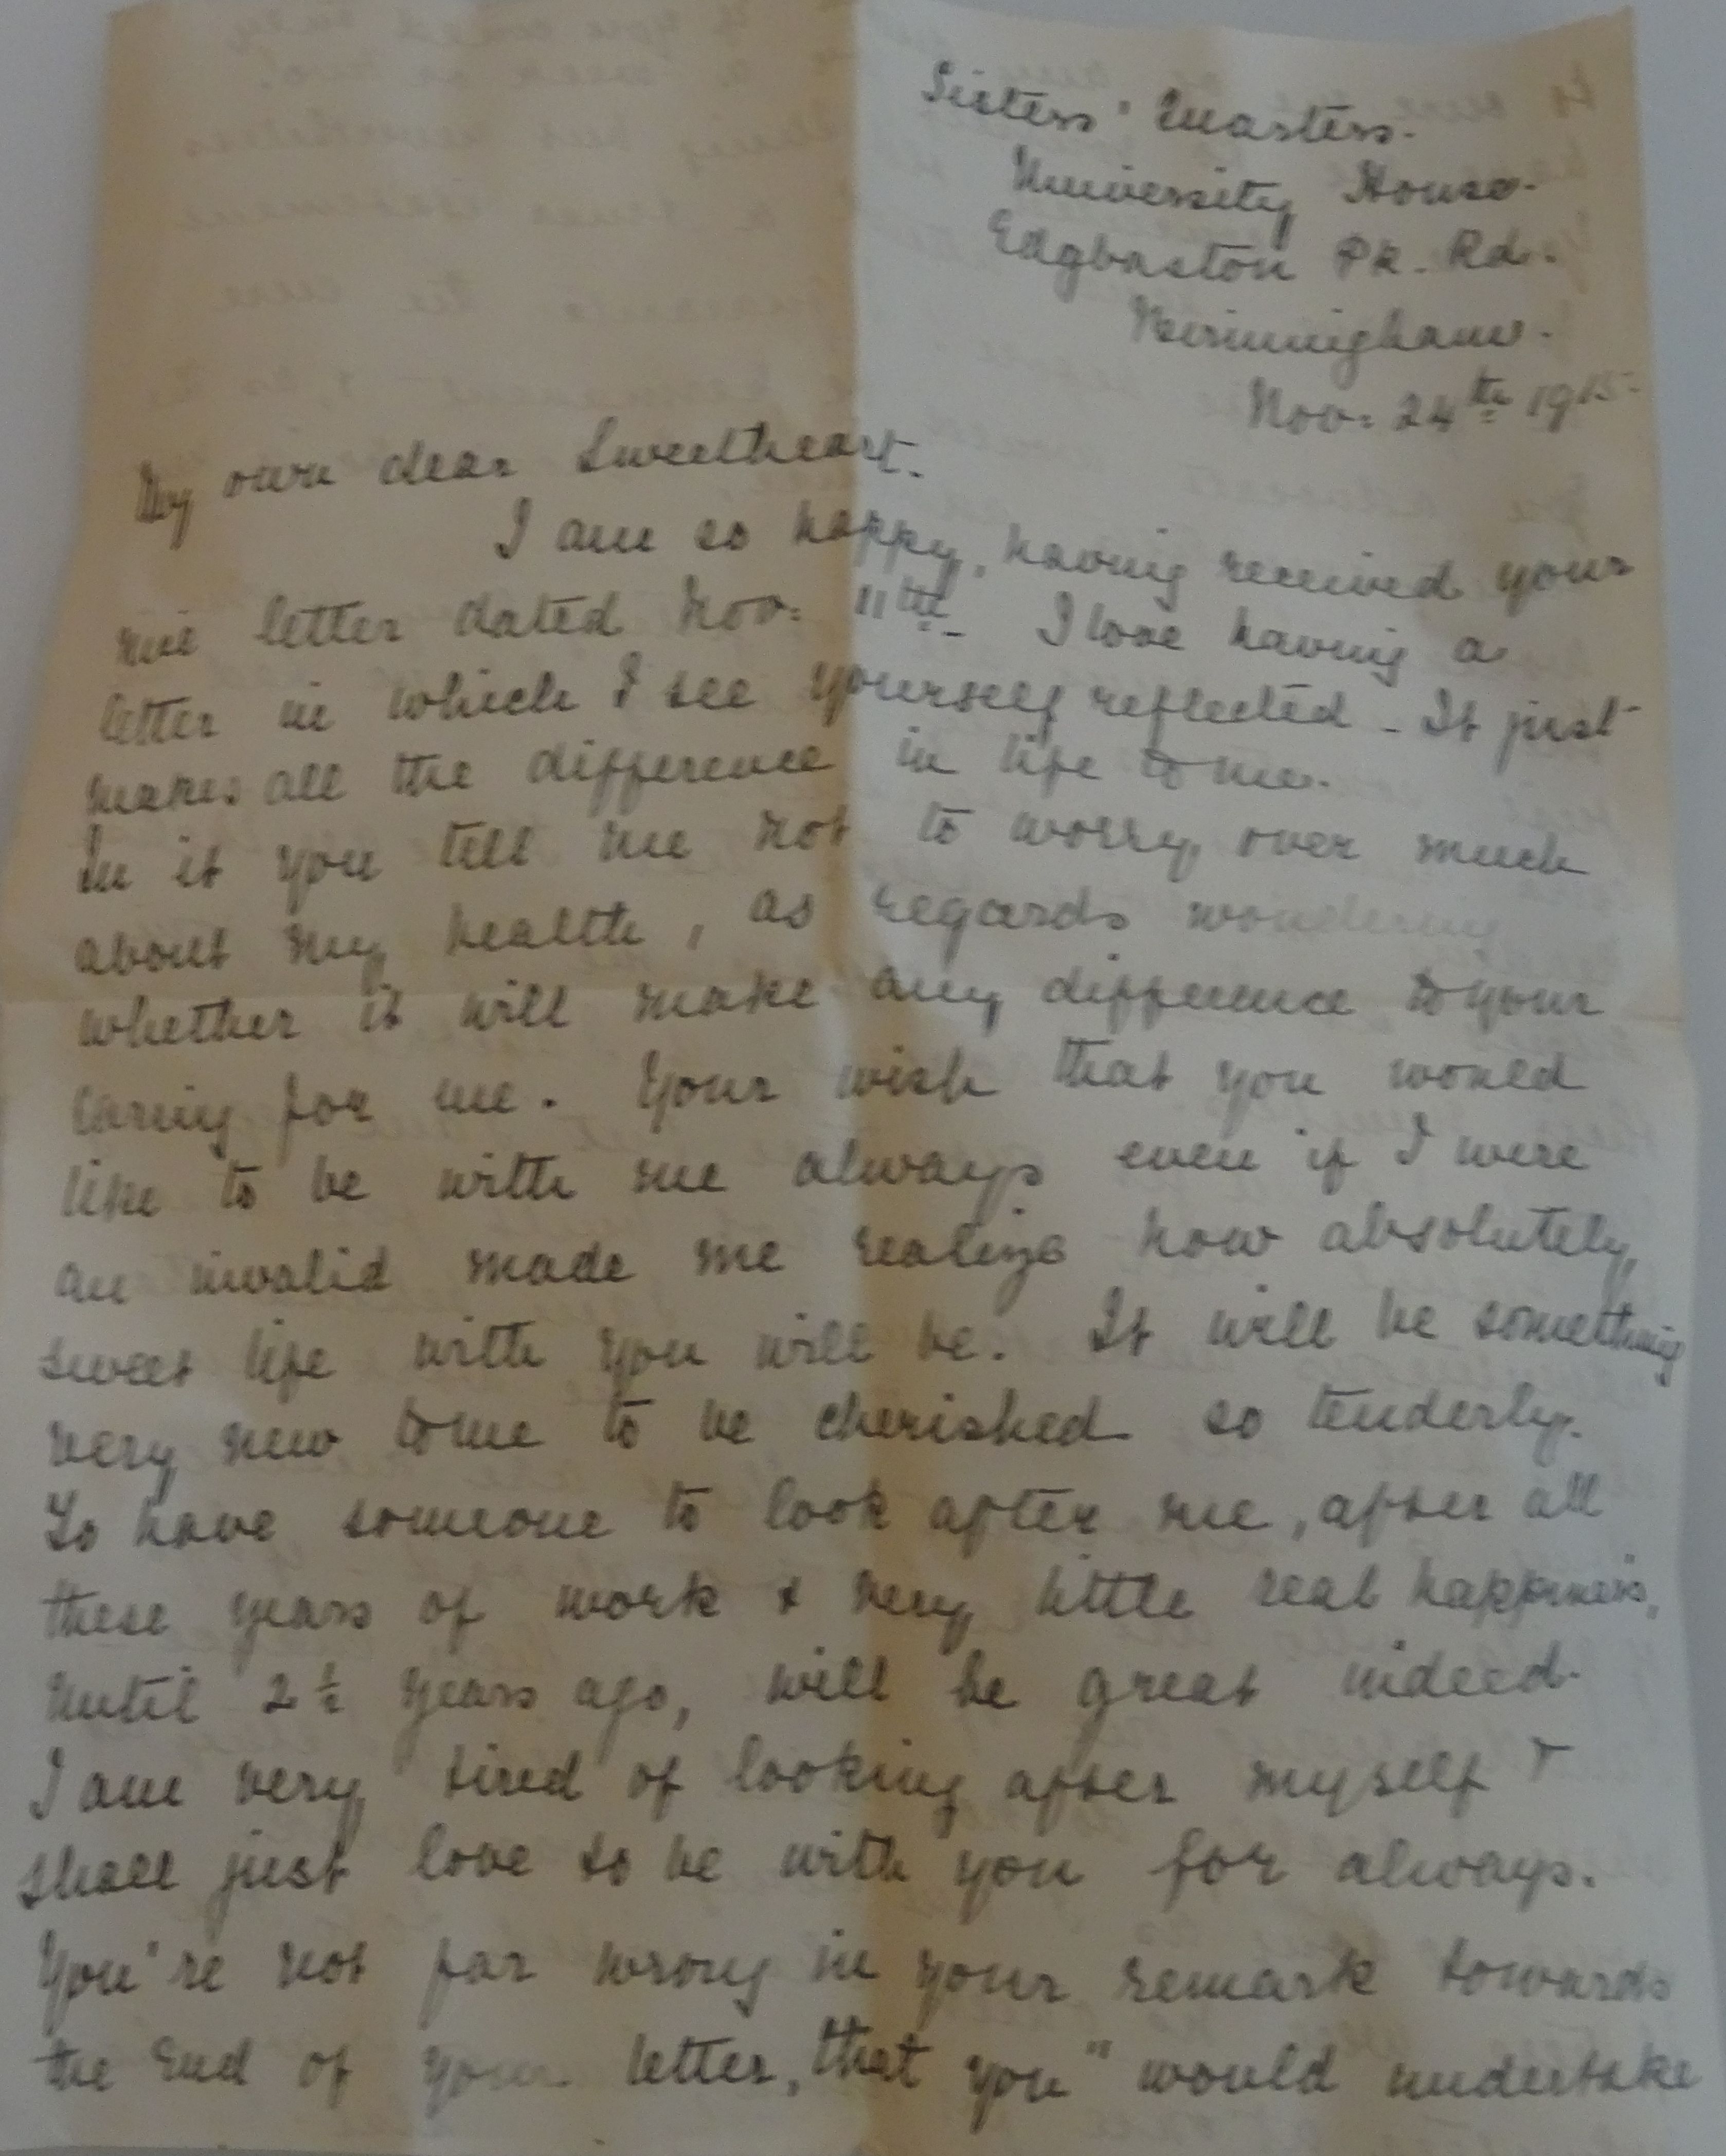 Sisters' Quarters.
University House.
Edgbaston Pk. Rd.
Birmingham.
Nov: 24th 1915.
My own dear Sweetheart.
I am so happy, having received your
nice letter dated Nov: 11th. I love having a
letter in which I see yourself reflected - It just
makes all the difference in life to me.
In it you tell me not to worry over much
about my health, as regards wondering
whether it will make any difference to your
caring for me. Your wish that you would
like to be with me always even if I were
an invalid made me realize how absolutely
sweet life with you will be. It will be something
very new to me to be cherished so tenderly.
To have someone to look after me, after all
these years of work & very little real happiness,
until 2½ years ago, will be great indeed.
I am very tired of looking after myself &
shall just love to be with you for always.
You're not far wrong in your remark towards
the end of your letter, that you "would undertake